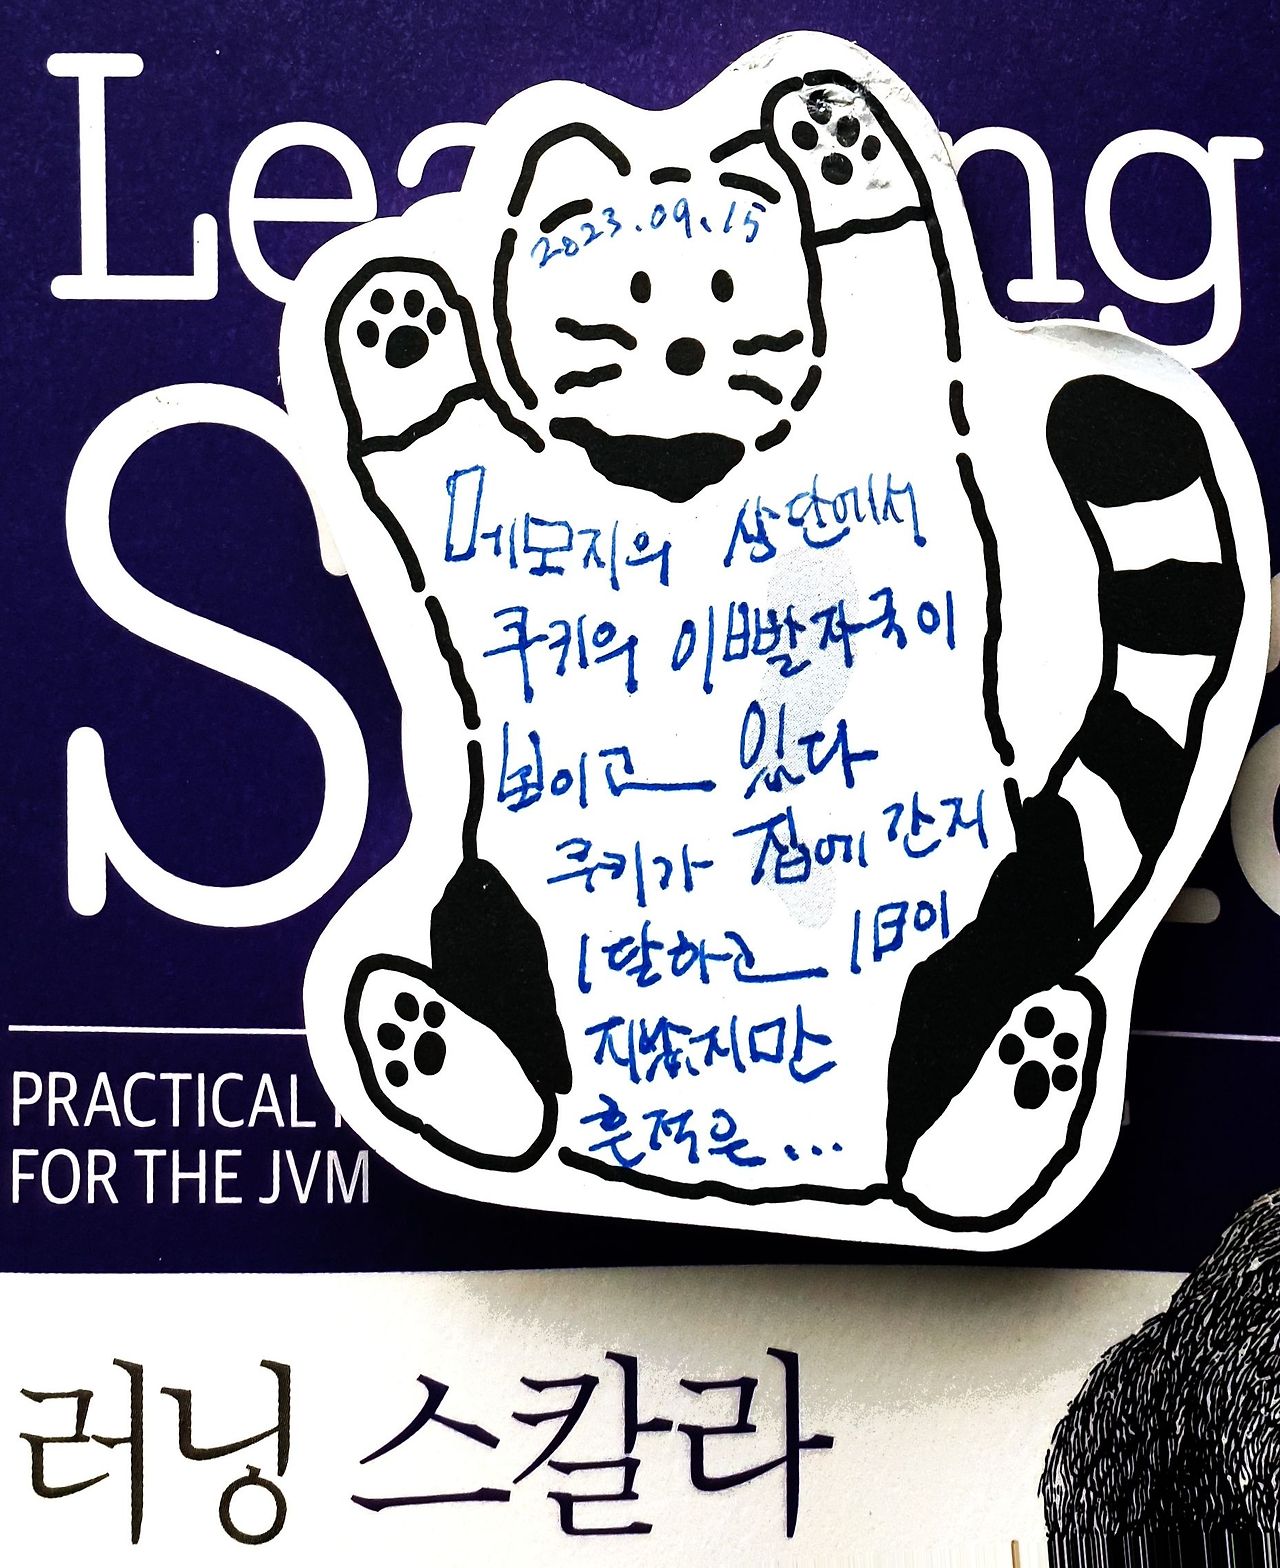 Lea ng
2023.09.15
S
메모지의 상단에서
쿠키의 이빨자국이
보이고 있다
쿠키가 집에 간지
1달하고 1일이
지났지만
흔적은...
PRACTICAL
FOR THE JVM
러닝 스칼라